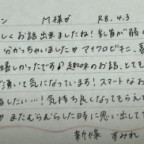 ン M様が R8.4.3
しくお話出来ましたね! 乳首が
分かっちゃいました
マイクロビキニ、
嬉しかったです♪趣味のお話、しても
頂いて気になっています! スマートなお
したい…! 気持ち良くなってもらえて
またむらむらした時に思い出して
すみれ